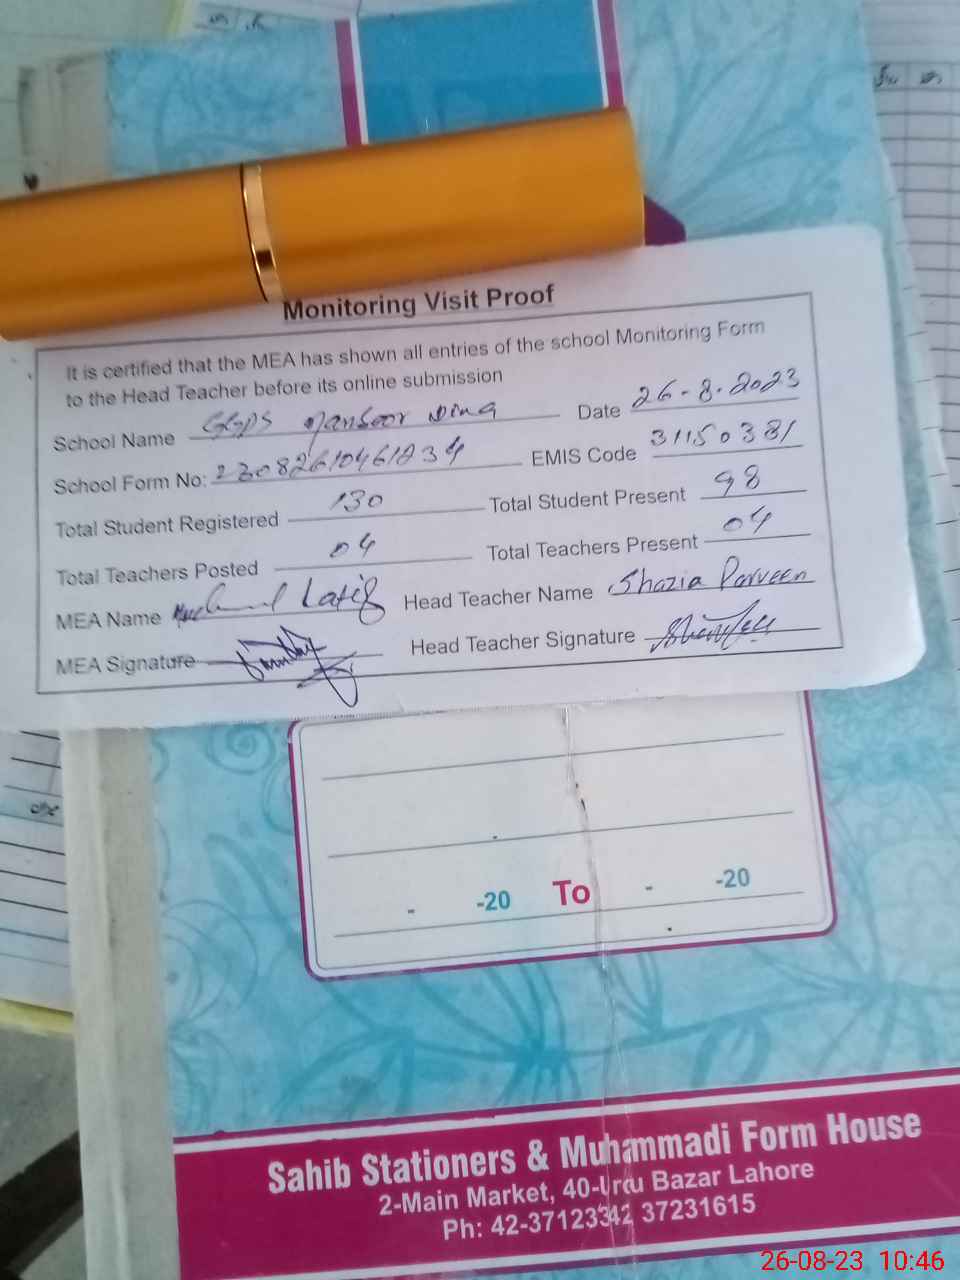 Monitoring Visit Proof
It is certified that the MEA has shown all entries of the school Monitoring Form
to the Head Teacher before its online submission
School Name GGPS Mansoor Date 26-8-2023
School Form No: EMIS Code 31150381
Total Student Registered 130 Total Student Present 98
Total Teachers Posted 04 Total Teachers Present 04
MEA Name Latif Head Teacher Name Shazia Parveen
MEA Signature Head Teacher Signature
- -20 To - -20
Sahib Stationers & Muhammadi Form House
2-Main Market, 40-Urdu Bazar Lahore
Ph: 42-37123342 37231615
26-08-23 10:46